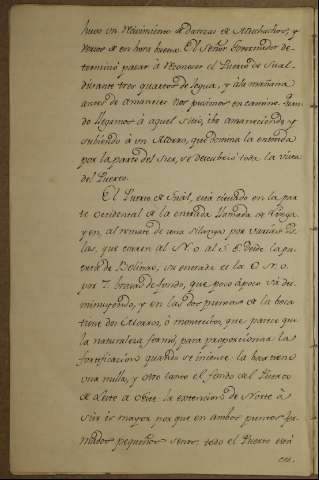 huvo un recivimiento de Danzas de Muchachos, y
Versos de en hora buena. El Señor Governador de-
terminó pasar à reconocer el Puerto de Sual
distante tres quartos de legua, y à la mañana
antes de amanecer nos pusimos en camino. Quan-
do llegamos à aquel sitio, iba amaneciendo, y
subiendo à un Altero, que domina la entrada
por la parte del Sur, se descubrio toda la vista
del Puerto.
El Puerto de Sual, está situado en la par
te occidental de la entrada llamada de
y en el remate de una silanga por varias Is-
las, que corren al N. O. al S. E. desde la pu
enta de Bolinao, su entrada es la O. N. O.
por 7. brazas de fondo, que poco à poco và dis-
minuyendo, y en las dos puntas de la boca
tiene dos ó montecitos, que parece que
la naturaleza formó, para proporcionar la
fortificacion quando se intente. la bar tiene
una milla, y otro tanto el fondo del Puerto
de Leste à Oeste. la extencion de Norte à
Sur es mayor por que en ambos puntos for-
mados pequeños senos, todo el Puerto està